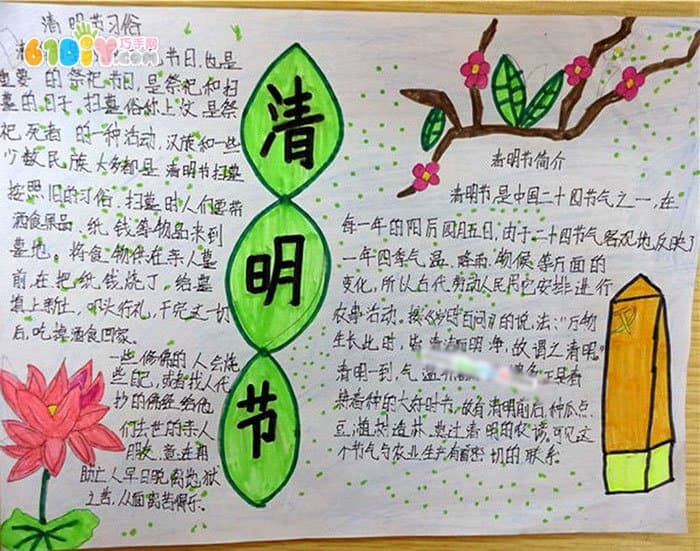 清明节习俗
61DIY巧手网
.com
节日,也是
重要 的祭祀节日,是祭祀和扫
墓的日子,扫墓俗称上坟,是祭
祀死者 的一种活动,汉族和一些
少数民族大多都是清明节扫墓
按照旧的习俗,扫墓时人们要带
酒食果品、纸钱等物品来到
墓地。将食物供在亲人墓
前,在把纸钱烧了,给墓
填上新土,叩头行礼,干完这一切
后,吃掉酒食回家。
一些修佛的人会烧
些自己,或者找人代
抄的佛经给他
们去世的亲人
朋友,意在
助亡人早日脱离地狱
之苦,从而离苦得乐。
清
明
节
清明节简介
清明节是中国二十四节气之一,在
每一年的阳历四月五日,由于二十四节气客观地反映了
一年四季气温、降雨、物候等方面的
变化,所以古代劳动人民用它安排进行
农事活动。按《岁时百问》的说法:“万物
生长此时,皆清洁而明净,故谓之清明。”
清明一到,气温
耕春种的大好时节,故有清明前后,种瓜点
豆,植树造林,莫过清明的农谚,可见这
个节气与农业生产有着密切的联系